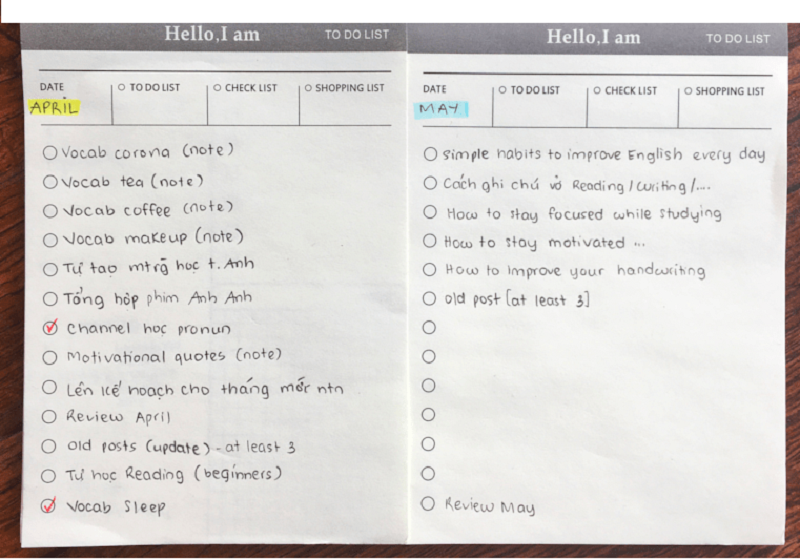 Hello, I am TO DO LIST
DATE O TO DO LIST O CHECK LIST O SHOPPING LIST
APRIL
Vocab corona (note)
Vocab tea (note)
Vocab coffee (note)
Vocab makeup (note)
Tự tạo mtrg học t. Anh
Tổng hợp phim Anh Anh
Channel học pronun
Motivational quotes (note)
Lên kế hoạch cho tháng mới ntn
Review April
Old posts (update) - at least 3
Tự học Reading (beginners)
Vocab Sleep
Hello, I am TO DO LIST
DATE O TO DO LIST O CHECK LIST O SHOPPING LIST
MAY
Simple habits to improve English every day
Cách ghi chú vở Reading / Writing / ....
How to stay focused while studying
How to stay motivated ...
How to improve your handwriting
old post [at least 3]
Review May